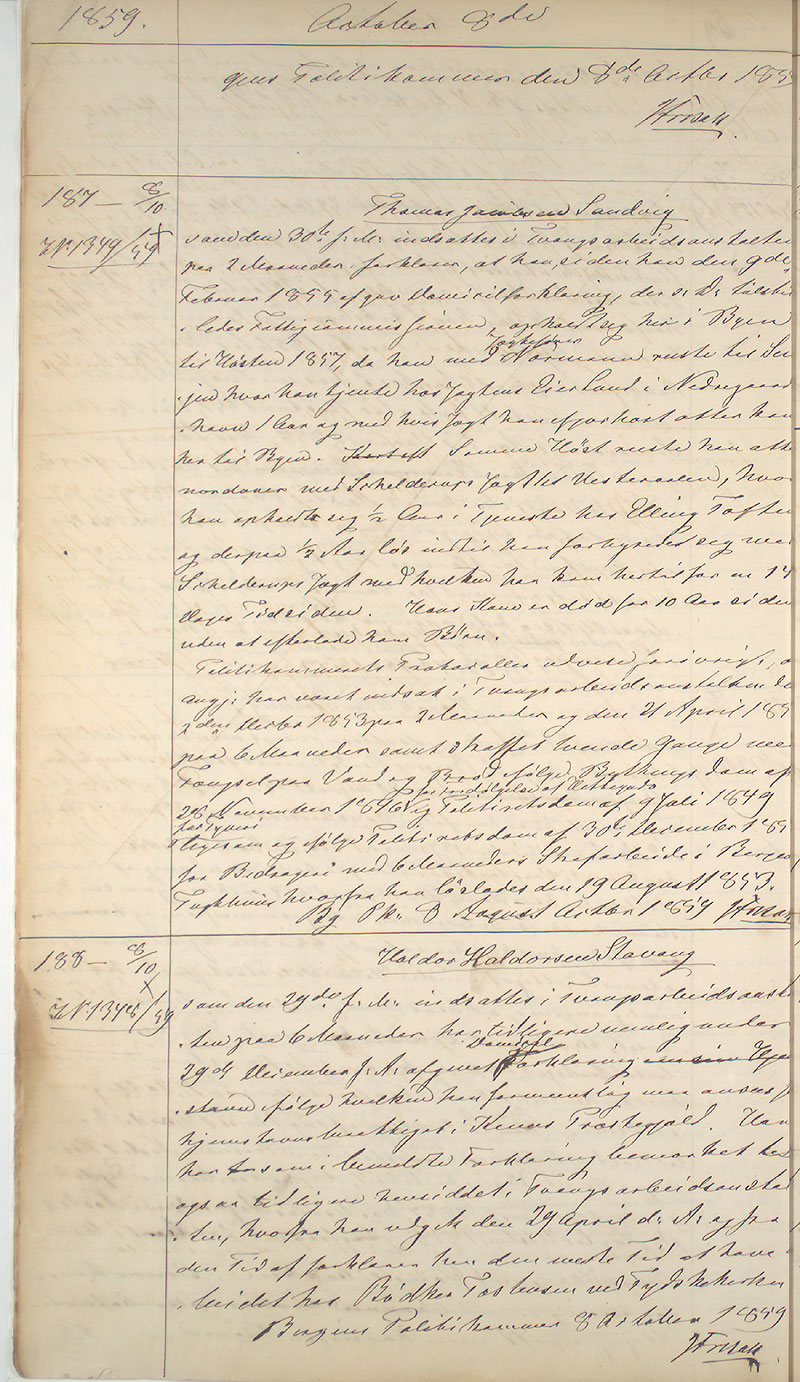 1859. October 8de
gens Politikammer den 8de Octbr 185
187 – 8/10
Thomas Jacobsen Sandvig
J.N. 1349/59
som den 30te f: M: indsattes i Tvangsarbeidsanstalten
paa 2 Maaneder forklarer, at han, siden han den 9de
Februar 1855 afgav Domicilforklaring, der s: D: tilstil
ledes Fattigcommissionen, opholdt seg her i Byen
Jægtefører
til Høsten 1857, da han med Normann reiste til Sen
jen hvor han tjente hos Jagtens Eier Lund i
havn 1 Aar og med hvis Jagt han ifjor høst atter kom
her til Byen. Samme Høst reiste han atte
nordover med Schelderups Jagt til Vesteraalen, hvor
han opholdt seg ½ Aar i Tjeneste hos Elling Toften
og derpaa ½ Aar løs indtil han forhyrede seg med
Schelderups Jagt med hvilken han kom hertil for en 14
Dages Tid siden. Hans Kone er død for 10 Aar siden
uden at efterlade ham Børn.
Politikammerets Protocoller udvise forøvrigt, a
Angj: har været indsat i Tvangsarbeidsanstalten den
2den Decbr 1853 paa 2 Maaneder og den 21 April 185
paa 6 Maaneder samt straffet tvende Gange med
Fængsel paa Vand og Brød ifølge Bythings Dom af
28 November 1846 og Politiretsdom af 9 Juli 1849
for Tyveri
ligesom og ifølge Politiretsdom af 30te December 185
for Bedrageri med 6 Maaneders Strafarbeide i Bergens
Tugthuus hvorfra han løslades den 19 August 1853.
Bg Pk. 8 Octbr 1859
188 – 8/10
Haldor Haldorsen Stavang
J.N. 1348/59
som den 29de f: M: indsattes i Tvangsarbeidsanstal
ten paa 6 Maaneder har tidligere nemlig under
Domicil
29de December f: A: afgivet Forklaring om sin Hjem
stavn ifølge hvilken han formentlig maa ansees
hjemstavnsberettiget i Kinns Præstegjeld. Han
har som i bemeldte Forklaring bemærket
ogsaa tidligere hensiddet i Tvangsarbeidsanstal
ten, hvorfra han udgik den 29 April d: A: og fra
den Tid af forklarer han den meste Tid at have
beidet hos Bødker Torbensen ved Tydskekirken
Bergens Politikammer 8 October 1859